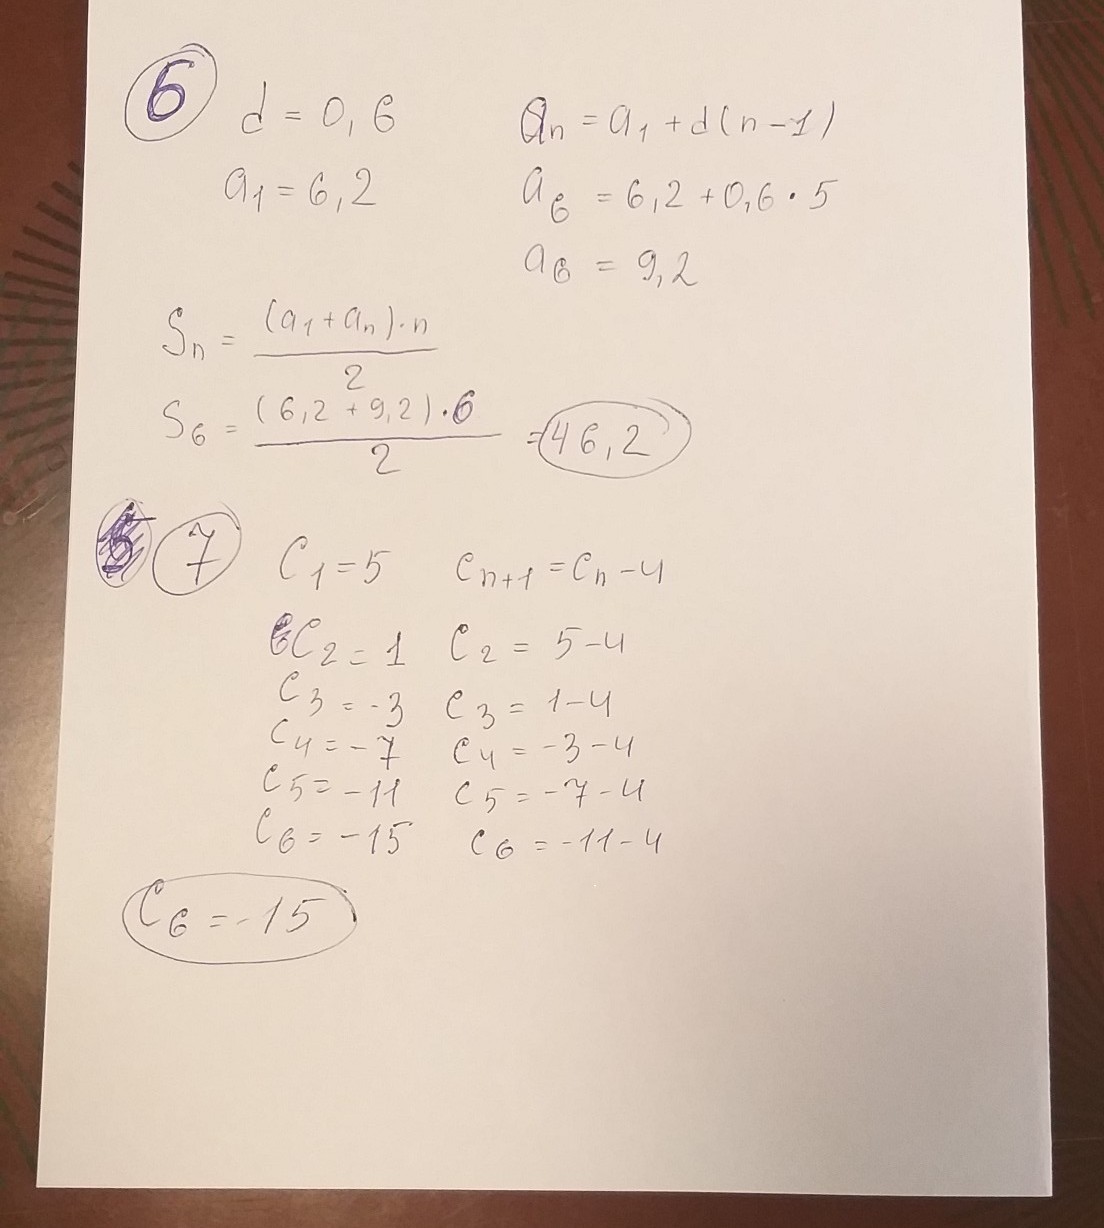 6 d = 0,6 an = a1 + d(n-1)
a1 = 6,2 a6 = 6,2 + 0,6 · 5
a6 = 9,2
Sn = (a1 + an) · n / 2
S6 = (6,2 + 9,2) · 6 / 2 = 46,2
7 C1 = 5 Cn+1 = Cn - 4
C2 = 1 C2 = 5 - 4
C3 = -3 C3 = 1 - 4
C4 = -7 C4 = -3 - 4
C5 = -11 C5 = -7 - 4
C6 = -15 C6 = -11 - 4
C6 = -15